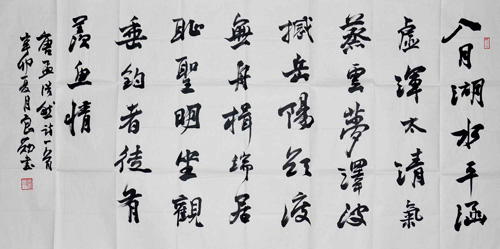 八月湖水平涵
虛渾太清氣
蒸雲夢澤波
撼岳陽欲渡
無舟楫端居
耻聖明坐觀
垂釣者徒有
羨魚情
唐孟浩然詩一首
辛卯夏月